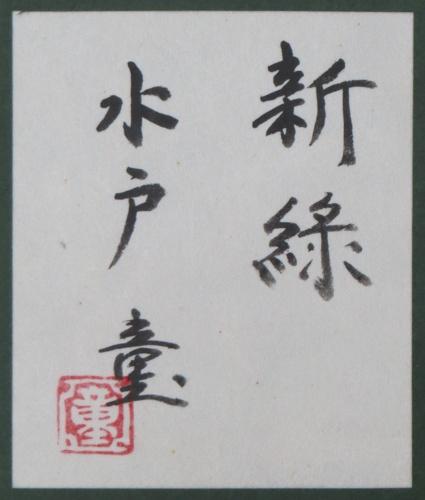 新綠
水戸童
童